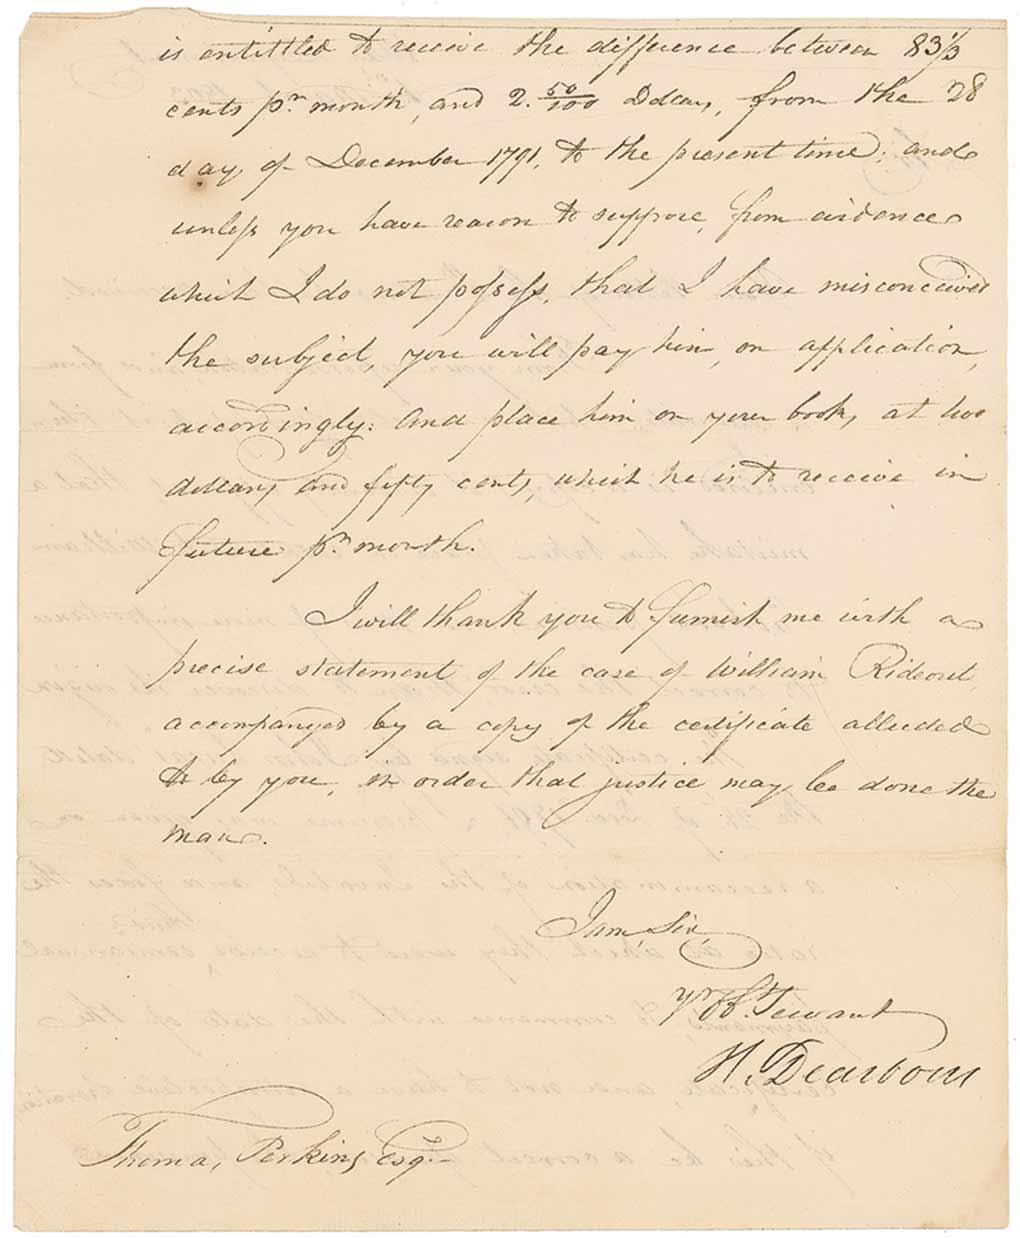 is entitled to receive the difference between 83 1/3
cents pr month, and 2. 50/100 Dollars, from the 28
day of December 1791, to the present time; and
unless you have reason to suppose, from evidence
which I do not possess, that I have misconceived
the subject, you will pay him, on application,
accordingly: and place him on your books, at two
dollars and fifty cents, which he is to receive in
future pr month.
I will thank you to furnish me with a
precise statement of the case of William Rideout,
accompanyed by a copy of the certificate alluded
to by you, in order that justice may be done the
man.
I am, Sir,
yr Ob. Servant
H. Dearborn
Thomas Perkins Esqr.